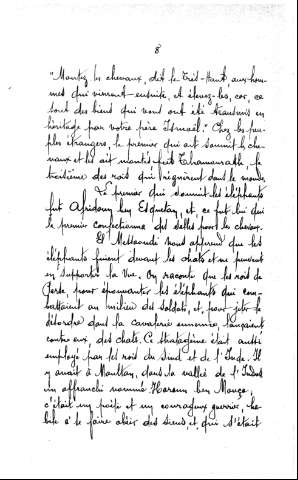 8
"Montez les chevaux, dit le Très-Haut, aux hom-
mes qui vinrent ensuite, et élevez-les, car, ce
sont des biens qui vous ont été transmis en
héritage par votre père Ismaël. Chez les peu-
ples étrangers, le premier qui ait soumit le che-
vaux et les ait montés fut Thamourath, le
troisième des rois qui règnèrent dans le monde.
Le premier qui soumit les éléphants
fut Afridoun ben Esquetan, et, ce fut lui qui
le premier confectionna des selles pour les chevaux.
El Messaoudi nous apprend que les
éléphants fuient devant les chats et ne peuvent
en supporter la vue. On raconte que les rois de
Perse, pour épouvanter les éléphants qui com-
battaient au milieu des soldats, et, pour jeter le
désordre dans la cavalerie ennemie, lançaient
contre eux, des chats. Ce stratagème était aussi
employé par les rois du Sind et de l'Inde. Il
y avait à Moultan, dans la vallée de l'Indus
un affranchi nommé Haroun ben Mouça,
c'était un poète et un courageux guerrier, ha-
bile à se faire obéir des siens, et, qui s'était